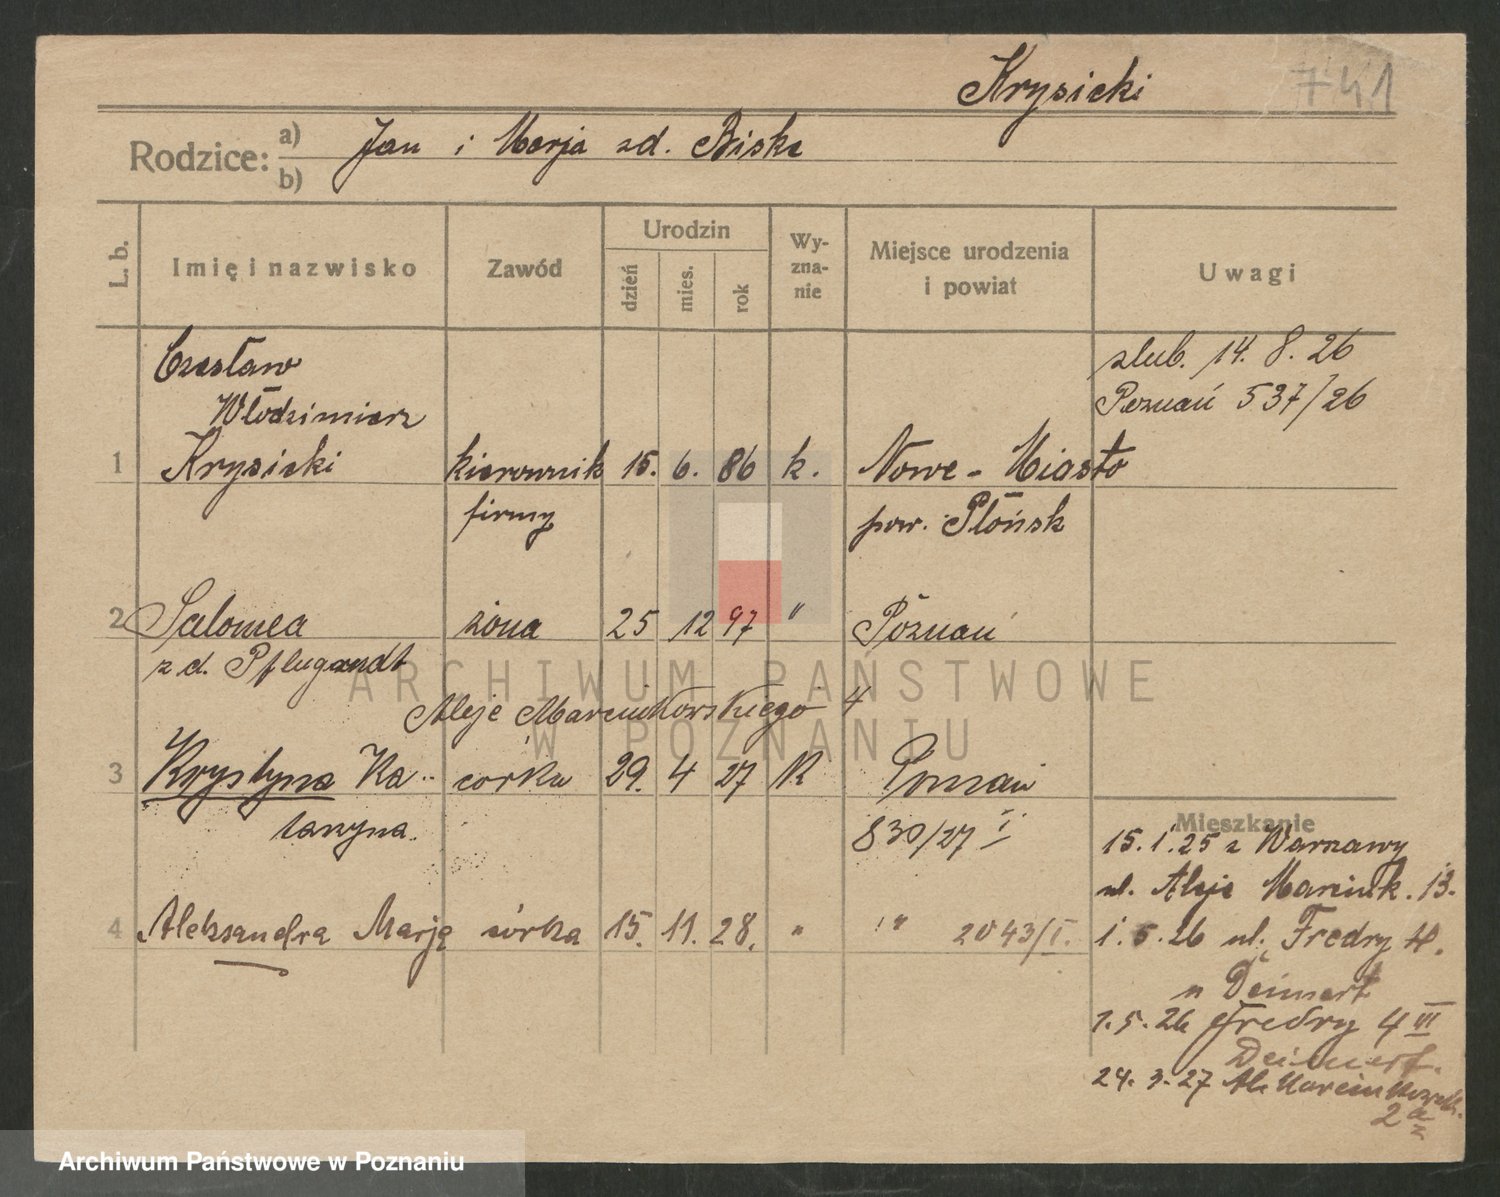 Krysicki
741
Rodzice: a) Jan i Marja zd. Biske
b)
L. b. Imię i nazwisko Zawód Urodzin dzień mies. rok Wyznanie Miejsce urodzenia i powiat Uwagi
ślub. 14. 8. 26
Poznań 537/26
Czesław
Włodzimierz
1 Krysicki kierownik 15. 6. 86 k. Nowe - Miasto
firmy pow. Płońsk
2 Salomea żona 25 12 97 " Poznań
z d. Pflugradt
Aleje Marcinkowskiego 4
3 Krystyna Ka- córka 29. 4 27 K Poznań
tarzyna. 830/27 I
4 Aleksandra Marja córka 15. 11. 28. " " 2043/I.
Mieszkanie
15.1.25 z Warszawy
ul. Aleje Marcink. 13.
1.5.26 ul. Fredry 4.
u Deimert
1.5.26 Fredry 4 VI
Deimert.
24.3.27 Al. Marcinkowsk.
2a
ARCHIWUM PAŃSTWOWE
W POZNANIU
Archiwum Państwowe w Poznaniu